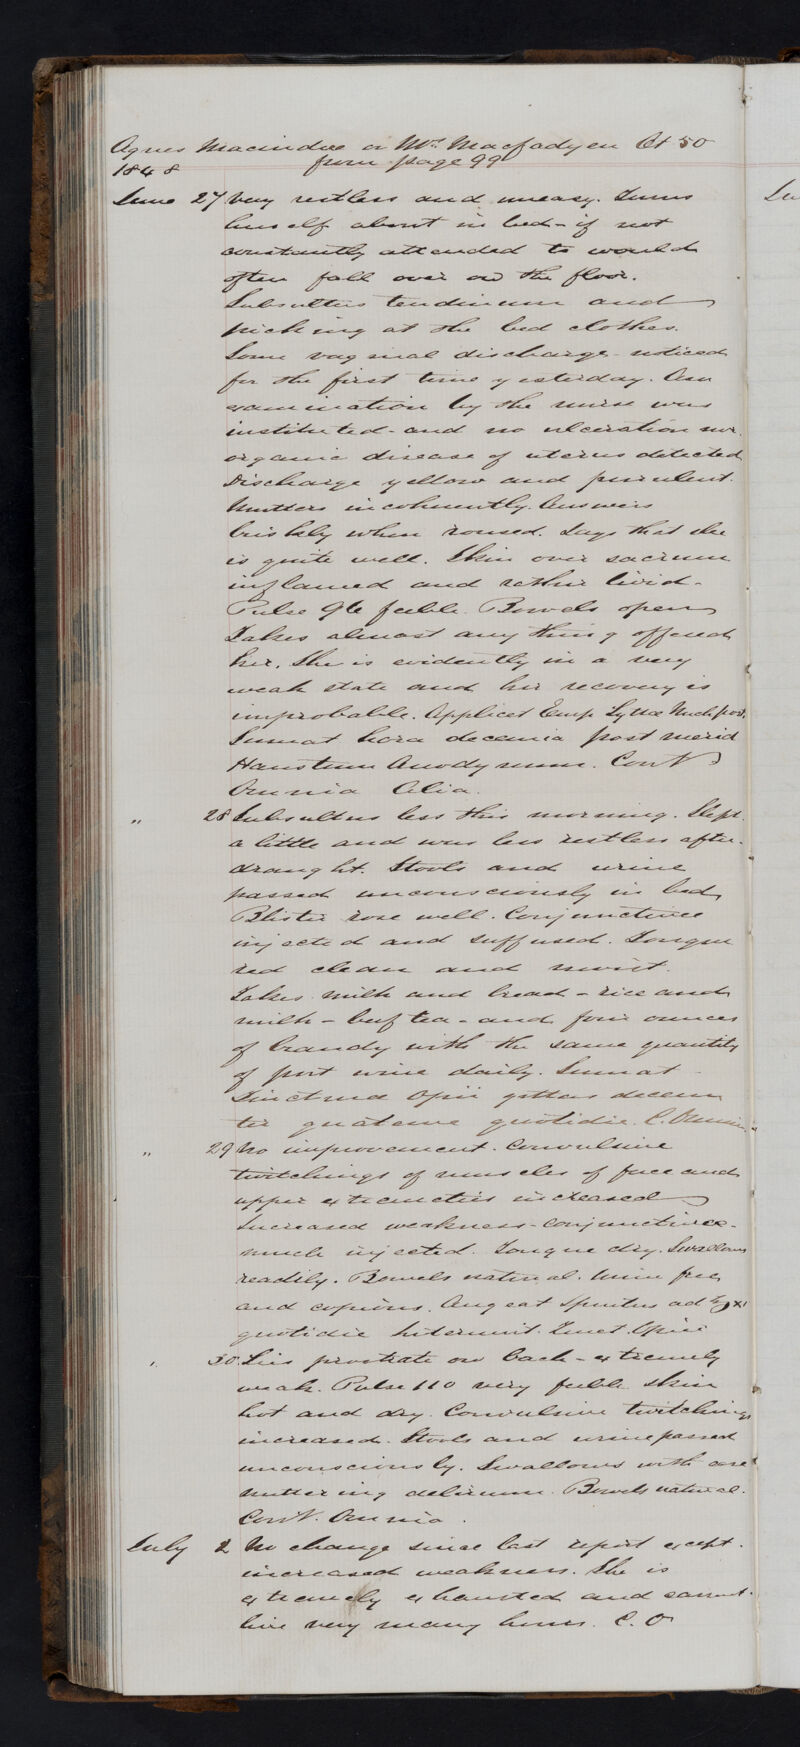 Agnes Macindoe or Mrs Macfadyen Æt 50
1848 from page 99
June 27 Very restless and uneasy. Turns
herself about in bed - if not
constantly attended to would
often fall over on the floor.
Subsultus tendinum and
picking at the bed clothes.
Some vaginal discharge noticed
for the first time yesterday. An
examination by the nurse was
instituted - and no ulceration nor
organic disease of uterus detected
Discharge yellow and purulent.
Mutters incoherently. Answers
briskly when roused. Says that she
is quite well. Skin over sacrum
inflamed and rather livid -
Pulse 96 feeble. Bowels open
Takes almost any thing offered
her. She is evidently in a very
weak state and her recovery is
improbable. Applicet Emp Lyttæ Nuch
Sumat hora decema post merid
Haustum Anodynum. Cont
Omnia Alia.
" 28 Subsultus less this morning. Slept
a little and was less restless after
draught. Stools and urine
passed unconsciously in bed
Blister rose well. Conjunctivæ
injected and suffused. Tongue
red clean and moist.
Takes milk and bread - rice and
milk - beef tea - and four ounces
of brandy with the same quantity
of port wine daily. Sumat
Tincturæ Opii guttas decem
ter quaterve quotidie. C. Omnia
" 29 No improvement. Convulsive
twitchings of muscles of face and
upper extremeties increased
Increased weakness - conjunctivæ
much injected. Tongue dry. Swallows
readily. Bowels natural. Urine free
and copious. Augeat Spiritus ad
quotidie Intermit. Tinct. Opii
" 30 Lies prostrate on back - extremely
weak. Pulse 110 very feeble skin
hot and dry. Convulsive twitchings
increased. Stools and urine passed
unconsciously. Swallows with care
muttering delirium. Bowels natural.
Cont. Omnia.
July 2 No change since last report except
increased weakness. She is
extremely exhausted and cannot
live very many hours. C. O